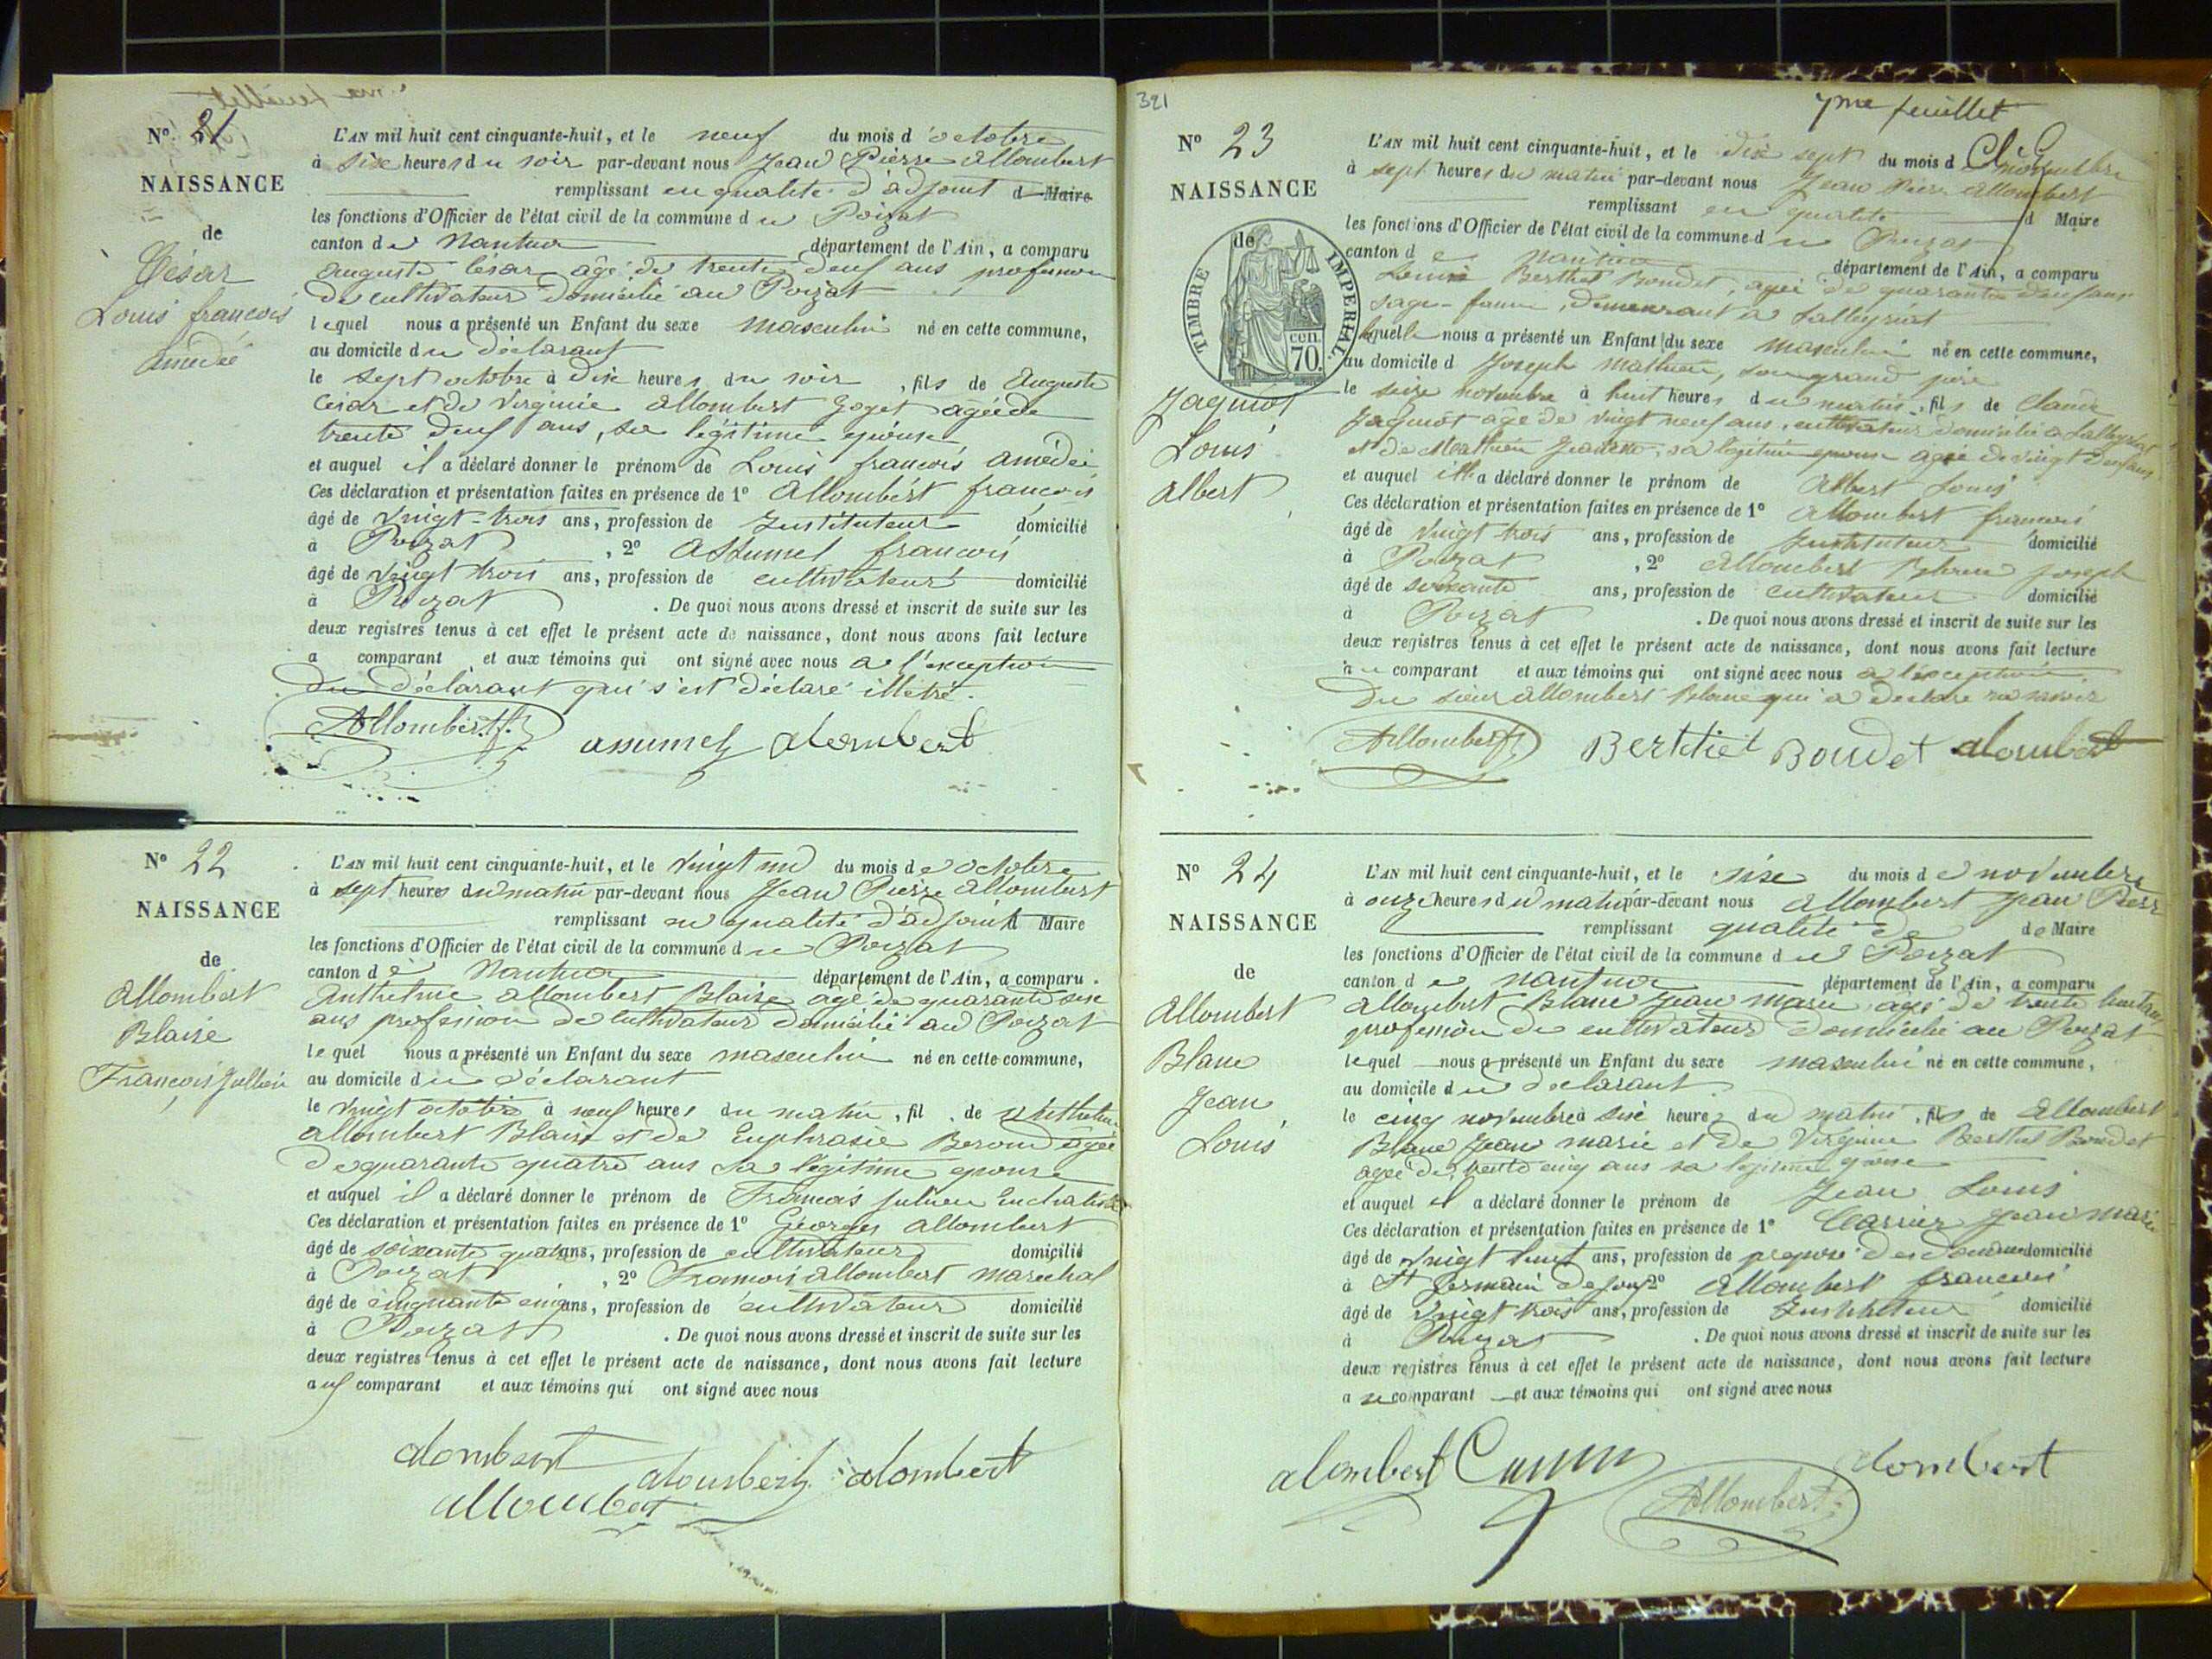 Nº 21
NAISSANCE
de
César
Louis françois
Amédée
L'AN mil huit cent cinquante-huit, et le neuf du mois d'octobre
à six heures du soir par-devant nous Jean Pierre Allombert
remplissant en qualité d'adjoint d Maire
les fonctions d'Officier de l'état civil de la commune du Poizat
canton de Nantua département de l'Ain, a comparu
auguste César âgé de trente deux ans profession
de cultivateur domicilié au Poizat
lequel nous a présenté un Enfant du sexe masculin né en cette commune,
au domicile du déclarant
le sept octobre à dix heures du soir, fils de Auguste
César et de Virginie Allombert Goget agée de
trente deux ans, sa légitime épouse
et auquel il a déclaré donner le prénom de Louis françois Amédée
Ces déclaration et présentation faites en présence de 1º Allombert françois
âgé de vingt-trois ans, profession de Instituteur domicilié
à Poizat, 2º Assumel françois
âgé de vingt trois ans, profession de cultivateur domicilié
à Poizat. De quoi nous avons dressé et inscrit de suite sur les
deux registres tenus à cet effet le présent acte de naissance, dont nous avons fait lecture
a comparant et aux témoins qui ont signé avec nous a l'exception
du déclarant qui s'est déclaré illétré.
Allombert f. assumel alombert
Nº 22
NAISSANCE
de
Allombert
Blaise
François Jullien
L'AN mil huit cent cinquante-huit, et le vingt un du mois de octobre
à sept heures du matin par-devant nous Jean Pierre Allombert
remplissant en qualité d'adjoint d Maire
les fonctions d'Officier de l'état civil de la commune du Poizat
canton de Nantua département de l'Ain, a comparu.
Anthelme allombert Blaise agé de quarante six
ans profession de cultivateur domicilié au Poizat
lequel nous a présenté un Enfant du sexe masculin né en cette commune,
au domicile du déclarant
le vingt octobre à neuf heures du matin, fil de
allombert Blaise et de Euphrasie Beroud agée
de quarante quatre ans sa légitime épouse
et auquel il a déclaré donner le prénom de François julien
Ces déclaration et présentation faites en présence de 1º Georges allombert
âgé de soixante quatre ans, profession de cultivateur domicilié
à Poizat, 2º François allombert marechal
âgé de cinquante cinq ans, profession de cultivateur domicilié
à Poizat. De quoi nous avons dressé et inscrit de suite sur les
deux registres tenus à cet effet le présent acte de naissance, dont nous avons fait lecture
aux comparant et aux témoins qui ont signé avec nous
alombert alombert alombert
allombert
321
7me feuillet
Nº 23
NAISSANCE
de
TIMBRE IMPERIAL
70 cen.
Jaquiot
Louis
Albert
L'AN mil huit cent cinquante-huit, et le dix sept du mois d novembre
à sept heures du matin par-devant nous Jean Pierre allombert
remplissant en qualité d Maire
les fonctions d'Officier de l'état civil de la commune du Poizat
canton de nantua département de l'Ain, a comparu
Louise Berthet Bondet, agée de quarante deux ans
sage-femme, demeurant à Lalleyriat
laquelle nous a présenté un Enfant du sexe masculin né en cette commune,
au domicile d Joseph Mathieu, son grand père
le seize novembre à huit heures du matin, fils de Claude
Jaquiot agé de vingt neuf ans, cultivateur domicilié à Lalleyriat
et de Mathieu, sa légitime épouse agée de vingt deux ans
et auquel elle a déclaré donner le prénom de Albert Louis
Ces déclaration et présentation faites en présence de 1º Allombert françois
âgé de vingt trois ans, profession de Instituteur domicilié
à Poizat, 2º Allombert Blanc joseph
âgé de soixante ans, profession de cultivateur domicilié
à Poizat. De quoi nous avons dressé et inscrit de suite sur les
deux registres tenus à cet effet le présent acte de naissance, dont nous avons fait lecture
au comparant et aux témoins qui ont signé avec nous a l'exception
du sieur allombert Blanc qui a déclaré ne savoir
Allombert f Berthet Bondet alombert
Nº 24
NAISSANCE
de
Allombert
Blanc
Jean
Louis
L'AN mil huit cent cinquante-huit, et le six du mois de novembre
à onze heures du matin par-devant nous allombert jean Pierre
remplissant qualité de de Maire
les fonctions d'Officier de l'état civil de la commune du Poizat
canton de nantua département de l'Ain, a comparu
allombert Blanc Jean marie agé de trente huit ans
profession de cultivateur domicilié au Poizat
lequel nous a présenté un Enfant du sexe masculin né en cette commune,
au domicile du déclarant
le cinq novembre à six heures du matin, fils de Allombert
Blanc Jean marie et de Virginie Berthet Bondet
agée de trente cinq ans sa légitime épouse
et auquel il a déclaré donner le prénom de Jean Louis
Ces déclaration et présentation faites en présence de 1º Jean marie
âgé de vingt huit ans, profession de préposé des domicilié
à St Germain de joux 2º allombert françois
âgé de vingt trois ans, profession de Instituteur domicilié
à Poizat. De quoi nous avons dressé et inscrit de suite sur les
deux registres tenus à cet effet le présent acte de naissance, dont nous avons fait lecture
au comparant et aux témoins qui ont signé avec nous
alombert alombert
Allombert f